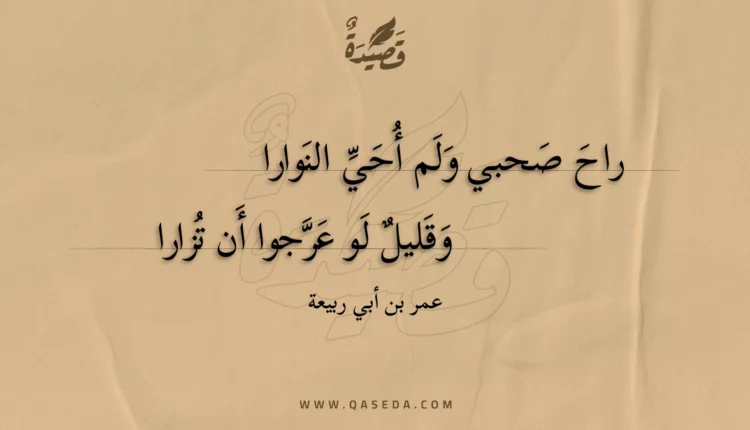 قَصِيدَةٌ
راحَ صَحبي وَلَم أُحَيِّ النَوارا
وَقَليلٌ لَو عَرَّجوا أَن تُزارا
عمر بن أبي ربيعة
WWW.QASEDA.COM